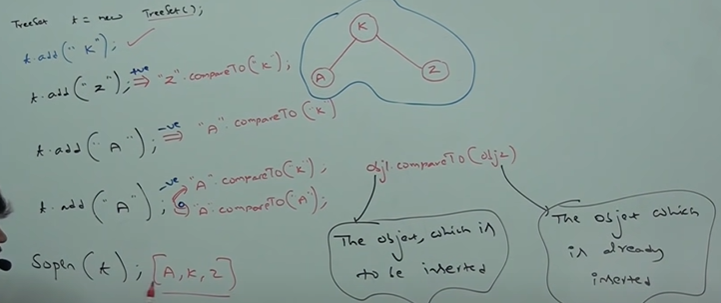 TreeSet t = new TreeSet();
t.add("K"); ✓
t.add("Z"); +ve ⇒ "Z".compareTo("K");
t.add("A"); -ve ⇒ "A".compareTo("K")
t.add("A"); -ve "A".compareTo("K");
0 "A".compareTo("A");
Sopln(t); [A, K, Z]
K
A
Z
obj1.compareTo(obj2)
The object, which is
to be inserted
The object which
is already
inserted